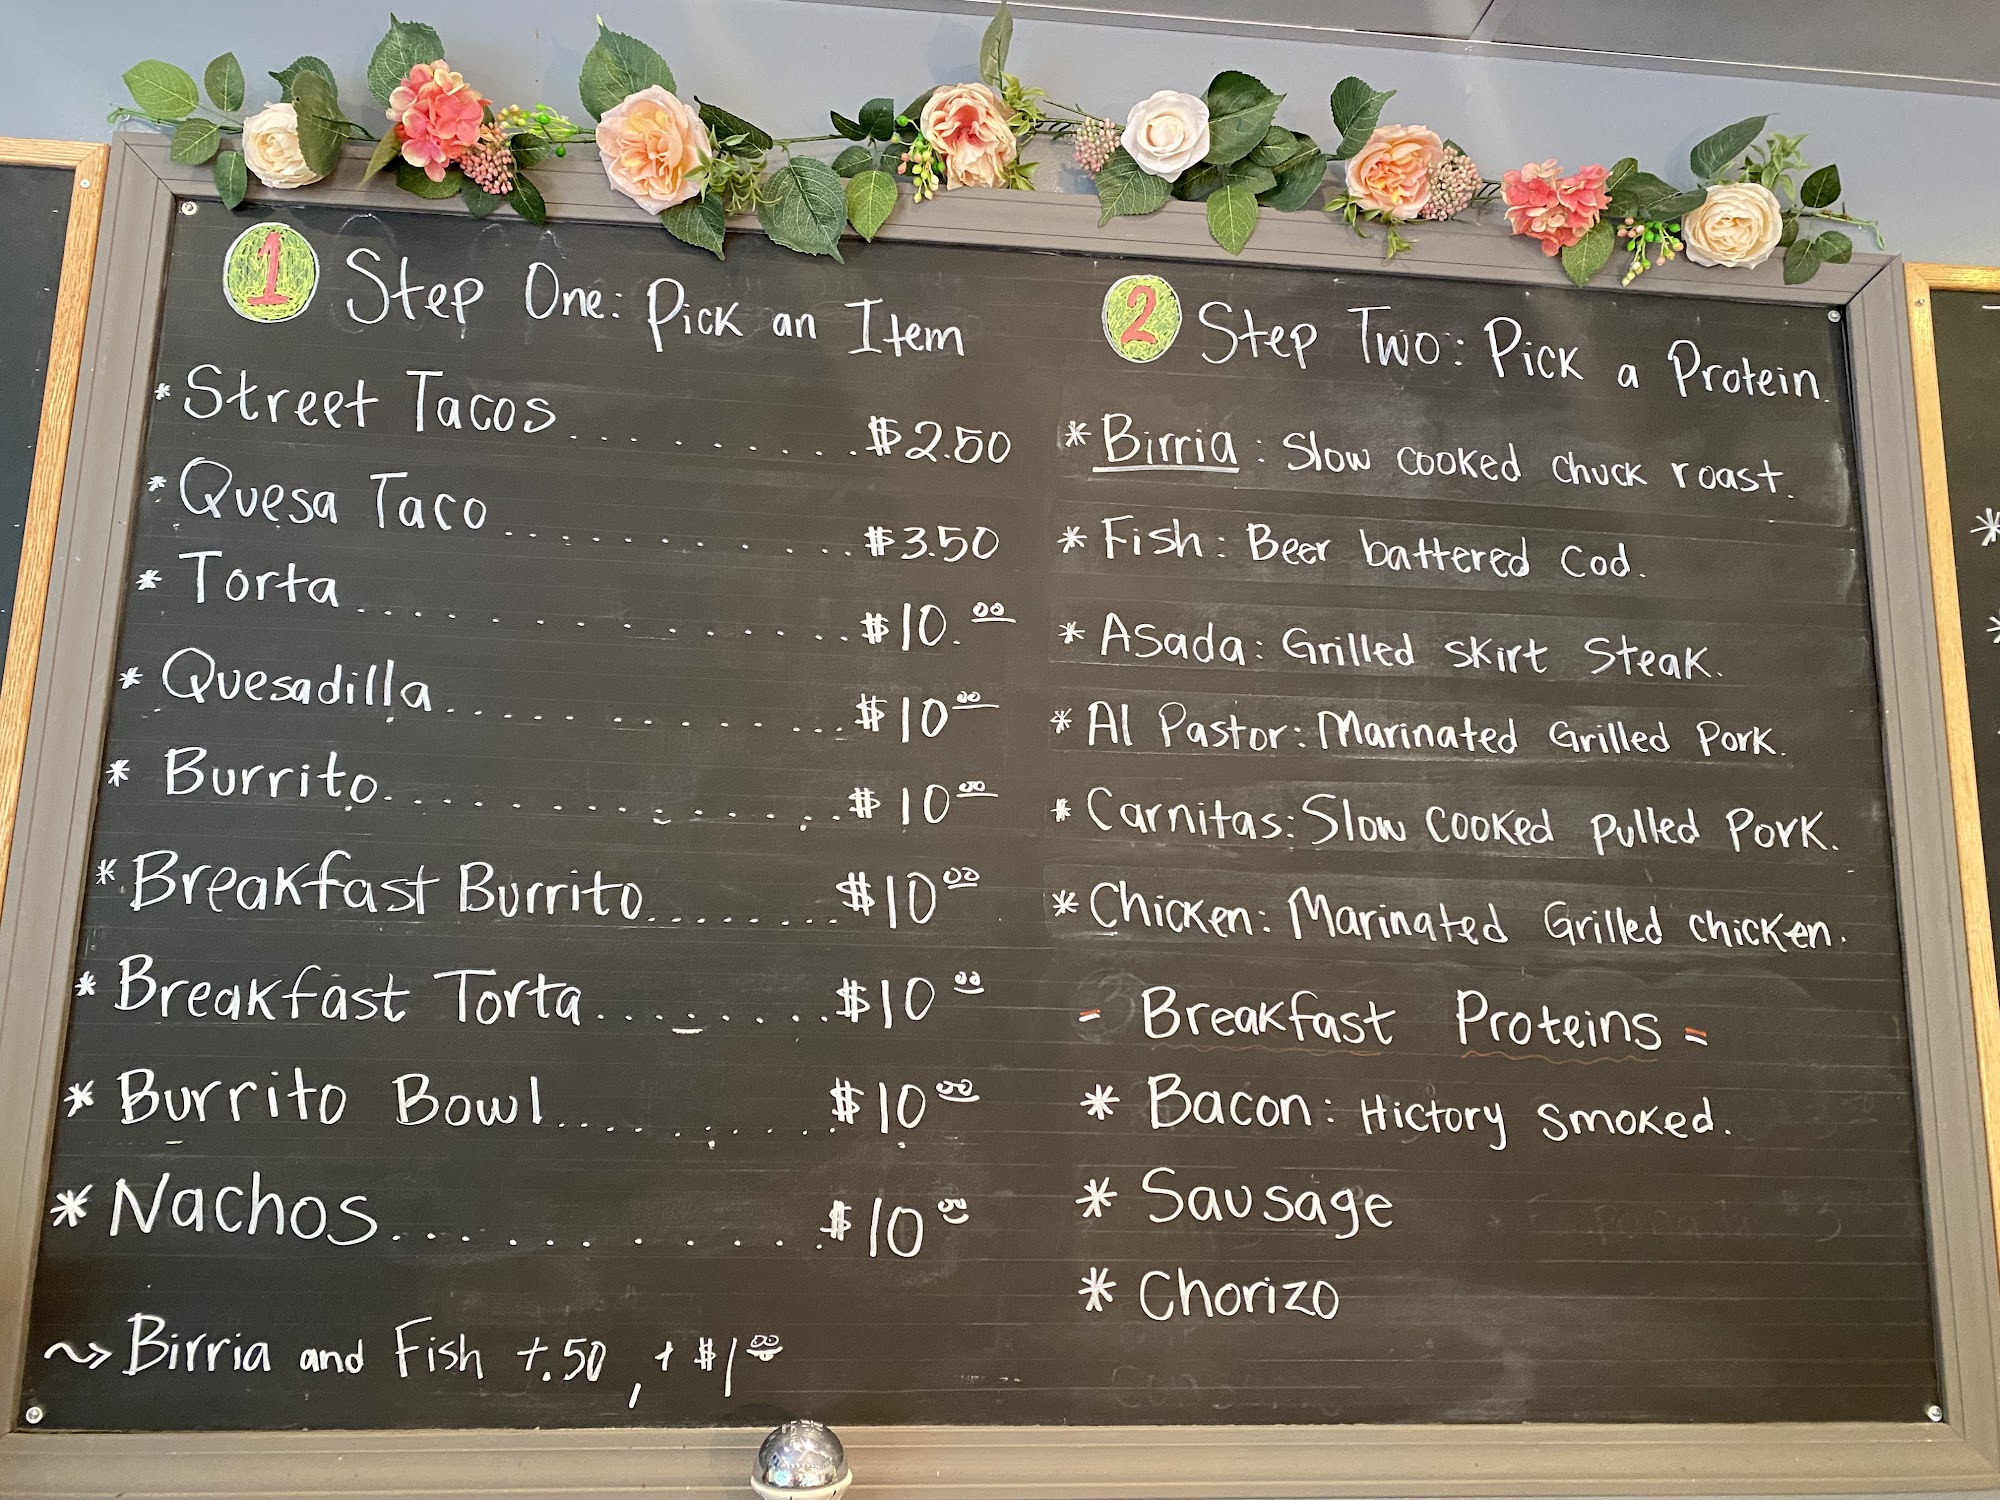 1 Step One: Pick an Item
* Street Tacos.............$2.50
* Quesa Taco.............$3.50
* Torta.............$10.00
* Quesadilla.............$10.00
* Burrito.............$10.00
* Breakfast Burrito........$10.00
* Breakfast Torta.........$10.00
* Burrito Bowl.........$10.00
* Nachos...........$10.00
~> Birria and Fish +.50, +$1.00
2 Step Two: Pick a Protein.
* Birria: Slow cooked chuck roast.
* Fish: Beer battered Cod.
* Asada: Grilled skirt Steak.
* Al Pastor: Marinated Grilled Pork.
* Carnitas: Slow cooked pulled Pork.
* Chicken: Marinated Grilled chicken.
- Breakfast Proteins =
* Bacon: Hictory smoked.
* Sausage
* Chorizo